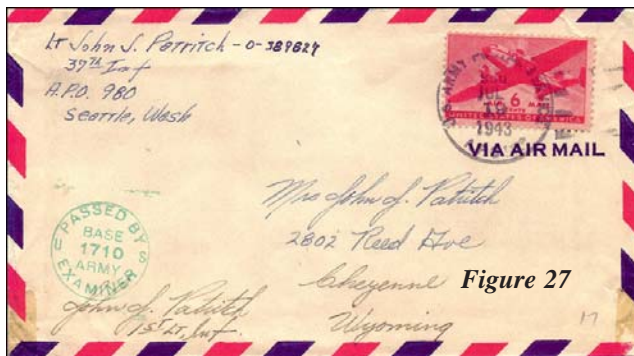 Lt John J. Petritch - O-389829
37th Inf
A.P.O. 980
Seattle, Wash
U.S. ARMY
JUL
19
1943
6
UNITED STATES OF AMERICA
VIA AIR MAIL
Mrs John J. Petritch
2802 Reed Ave
Cheyenne
Wyoming
Figure 27
PASSED BY
BASE
1710
ARMY
EXAMINER
U S
John J. Petritch
1st Lt, Inf.
17